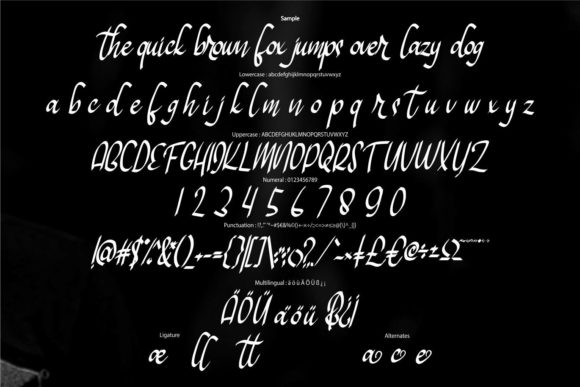 Sample
the quick brown fox jumps over lazy dog
Lowercase : abcdefghijklmnopqrstuvwxyz
a b c d e f g h i j k l m n o p q r s t u v w x y z
Uppercase : ABCDEFGHIJKLMNOPQRSTUVWXYZ
ABCDEFGHIJKLMNOPQRSTUVWXYZ
Numeral : 0123456789
1 2 3 4 5 6 7 8 9 0
Punctuation :
Multilingual : ä ö ü Ä Ö Ü ß ¿ ¡
ÄÖÜ äöü ß¿¡
Ligature
æ ll tt
Alternates
a c e